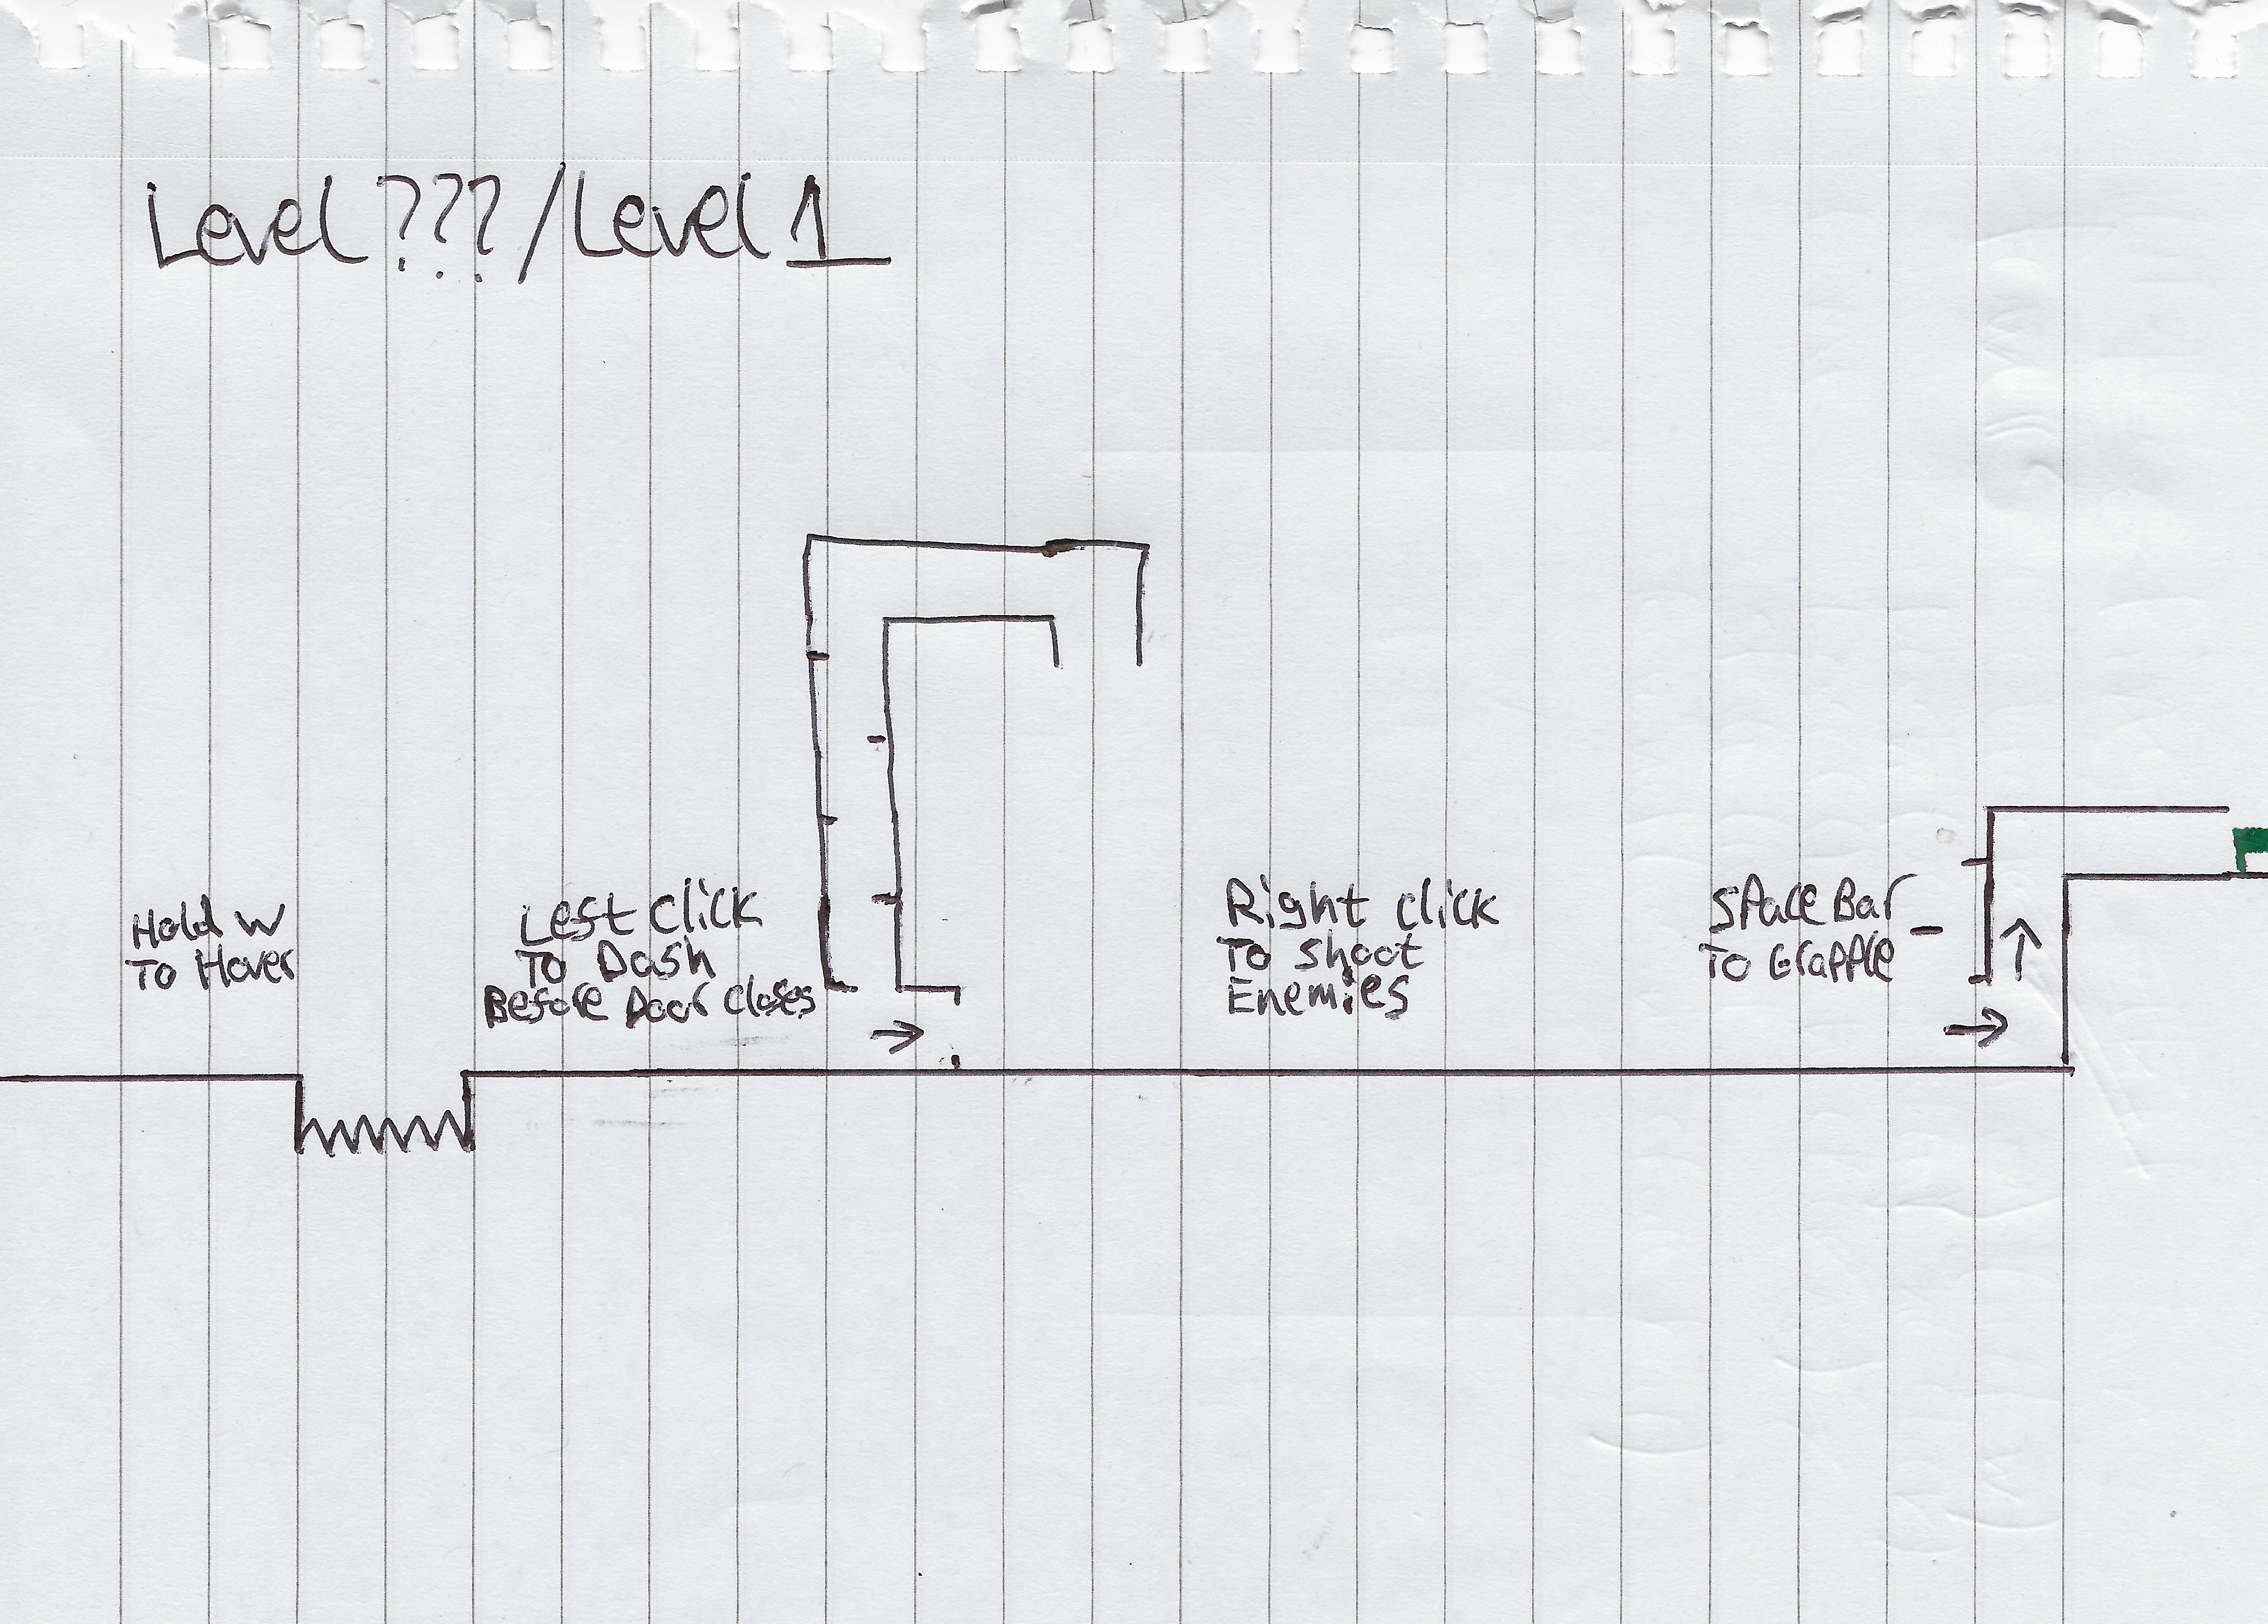 Level ???/Level 1
Hold W
To Hover
Left Click
To Dash
Before Door Closes
Right click
To shoot
Enemies
Space Bar
To Grapple